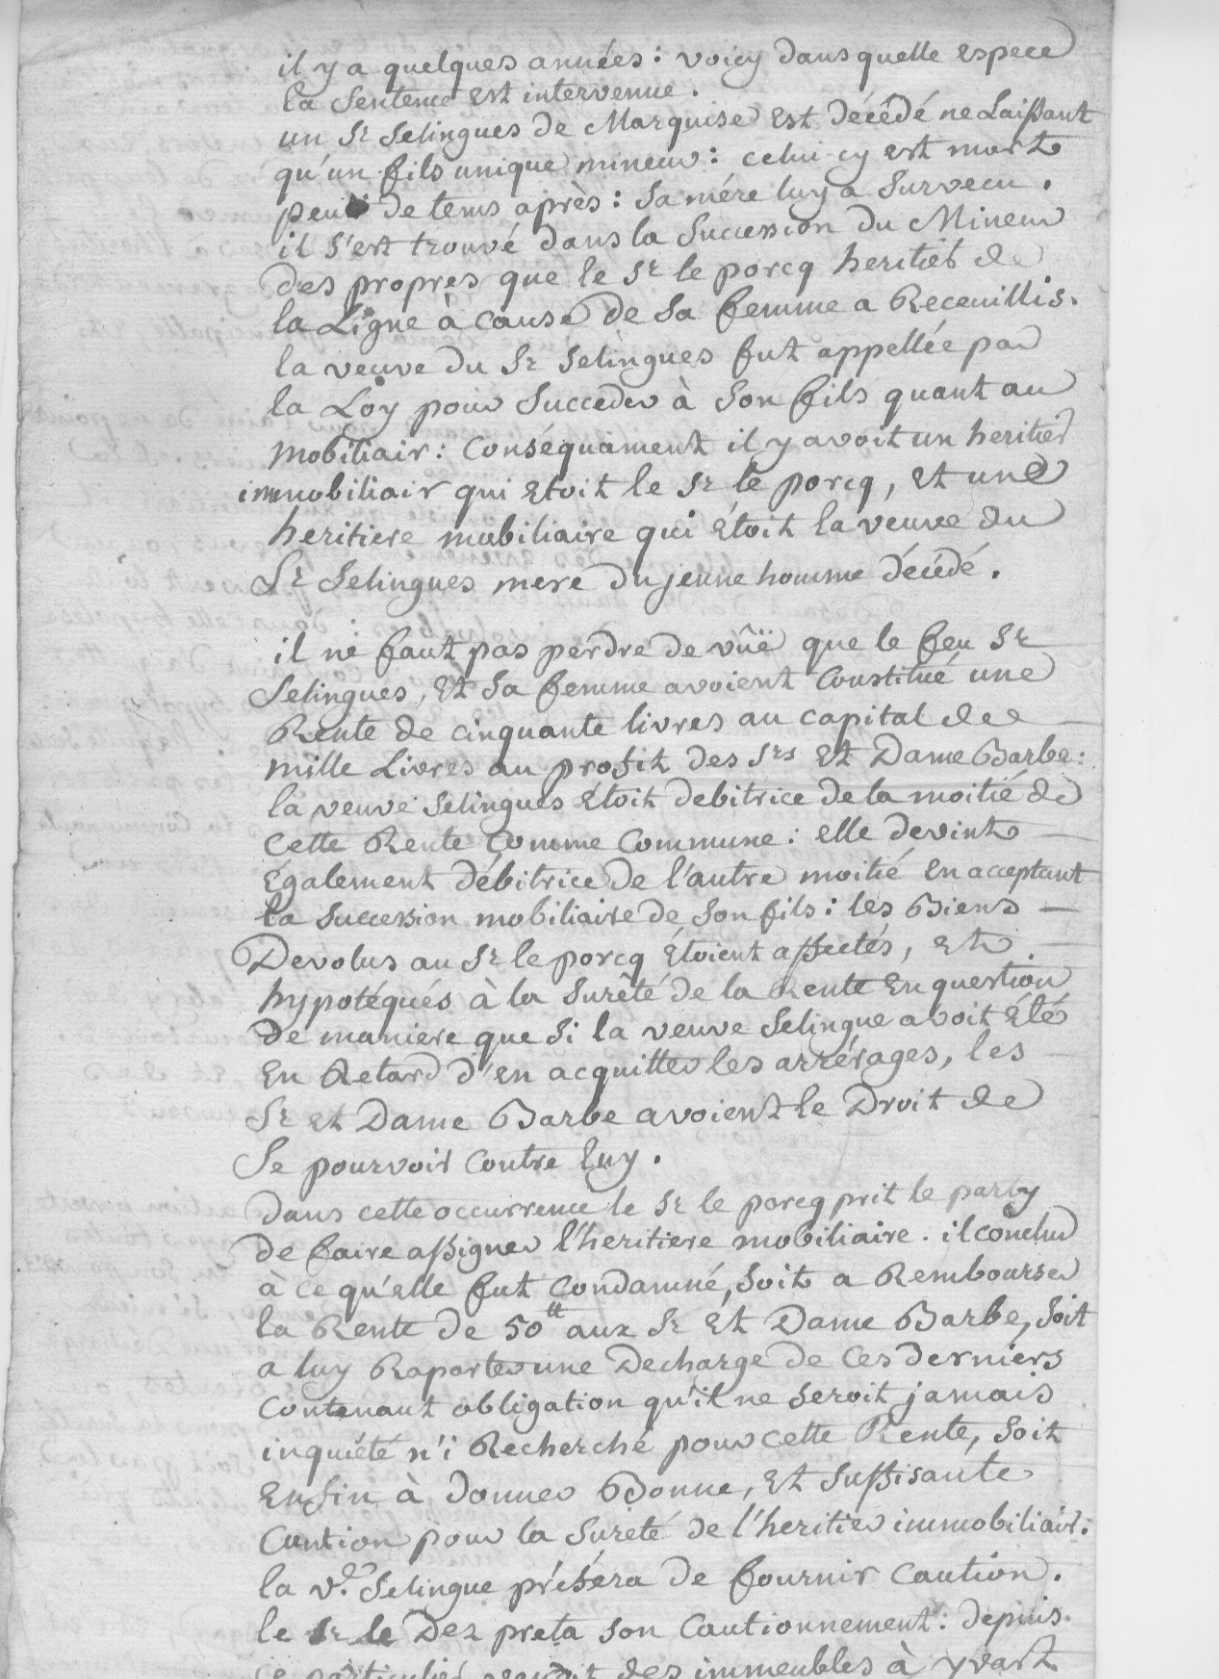 il y a quelques années : voicy dans quelle espece
la Sentence est intervenue.
un Sr Selingues de Marquise est décédé ne Laissant
qu'un fils unique mineur : celui-cy est mort
peu de tems après : Sa mére luy a Survecu.
il s'est trouvé dans la Succession du Mineur
des propres que le Sr le porcq heritier de
la Ligne à cause de Sa femme a Receuillis.
la veuve du Sr Selingues fut appellée par
la Loy pour Succeder à Son fils quant au
mobiliair : Conséquament il y avoit un heritier
immobiliair qui etoit le Sr le porcq, et une
heritiere mobiliaire qui étoit la veuve du
Sr Selingues mere du jeune homme décédé.
il ne faut pas perdre de vûë que le feu Sr
Selingues, et Sa femme avoient Constitué une
Rente de cinquante livres au capital de
mille Livres au profit des Srs et Dame Barbe :
la veuve Selingues étoit debitrice de la moitié de
cette Rente comme Commune : elle devint
également débitrice de l'autre moitié en acceptant
la Succession mobiliaire de Son fils : les Biens
Devolus au Sr le porcq étoient affectés, et
hypotéqués à la Sureté de la Rente en question
de maniere que Si la veuve Selingue avoit été
en Retard d'en acquitter les arrérages, les
Sr et Dame Barbe avoient le Droit de
Se pourvoir contre luy.
Dans cette occurrence le Sr le porcq prit le party
de faire assigner l'heritiere mobiliaire. il conclud
à ce qu'elle fut Condamné, Soit a Rembourser
la Rente de 50tt aux Sr et Dame Barbe, Soit
a luy Raporter une Decharge de Ces derniers
Contenant obligation qu'il ne Seroit jamais
inquiété n'i Recherché pour cette Rente, Soit
enfin à donner Bonne, et Suffisante
Caution pour la Sureté de l'heritier immobiliair.
la ve Selingue préféra de fournir Caution.
le Sr le Dez preta Son Cautionnement : depuis
ce particulier des immeubles à yvart